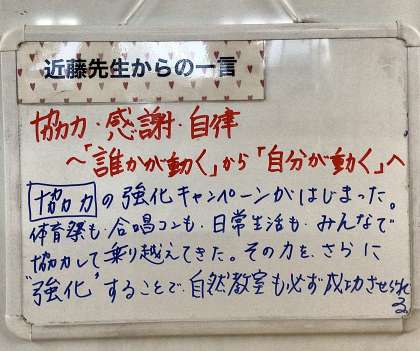 近藤先生からの一言
協力・感謝・自律
〜「誰かが動く」から「自分が動く」へ
協力の強化キャンペーンがはじまった。
体育祭も、合唱コンも、日常生活も、みんなで
協力して乗り越えてきた。その力を、さらに
"強化"することで、自然教室も必ず成功させられ
る